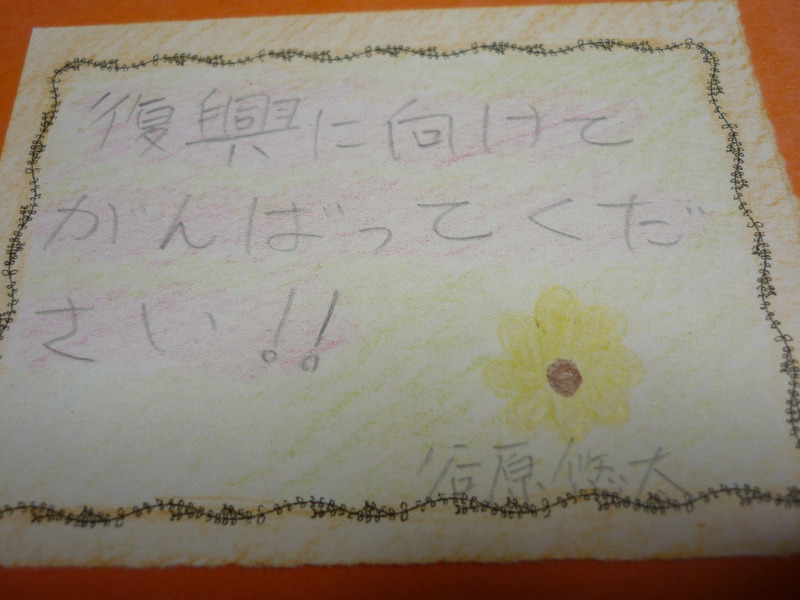 復興に向けて
がんばってくだ
さい!!
谷原悠大